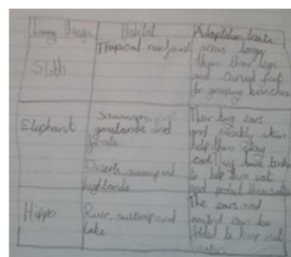 Living things Habitat Adaptation traits
Sloth
Tropical rainforest
arms longer
than their legs
and curved feet
for grasping branches
Elephant
savannas
grasslands and
forests
Deserts, swamp and
highlands
Their big ears
and wrinkly skin
help them stay
cool They have trunks
to help them eat
and protect themselves
Hippo
River, swamp and
lake
The ears and
nostrils can be
folded to keep out
water